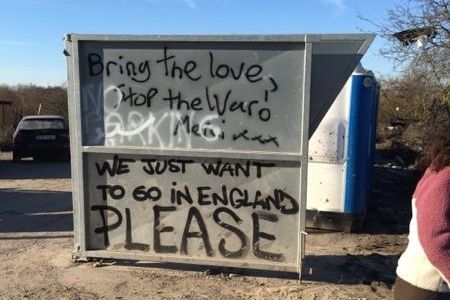 Bring the love,
Stop the War!
NO
PARKING
Merci xxx
WE JUST WANT
TO GO IN ENGLAND
PLEASE